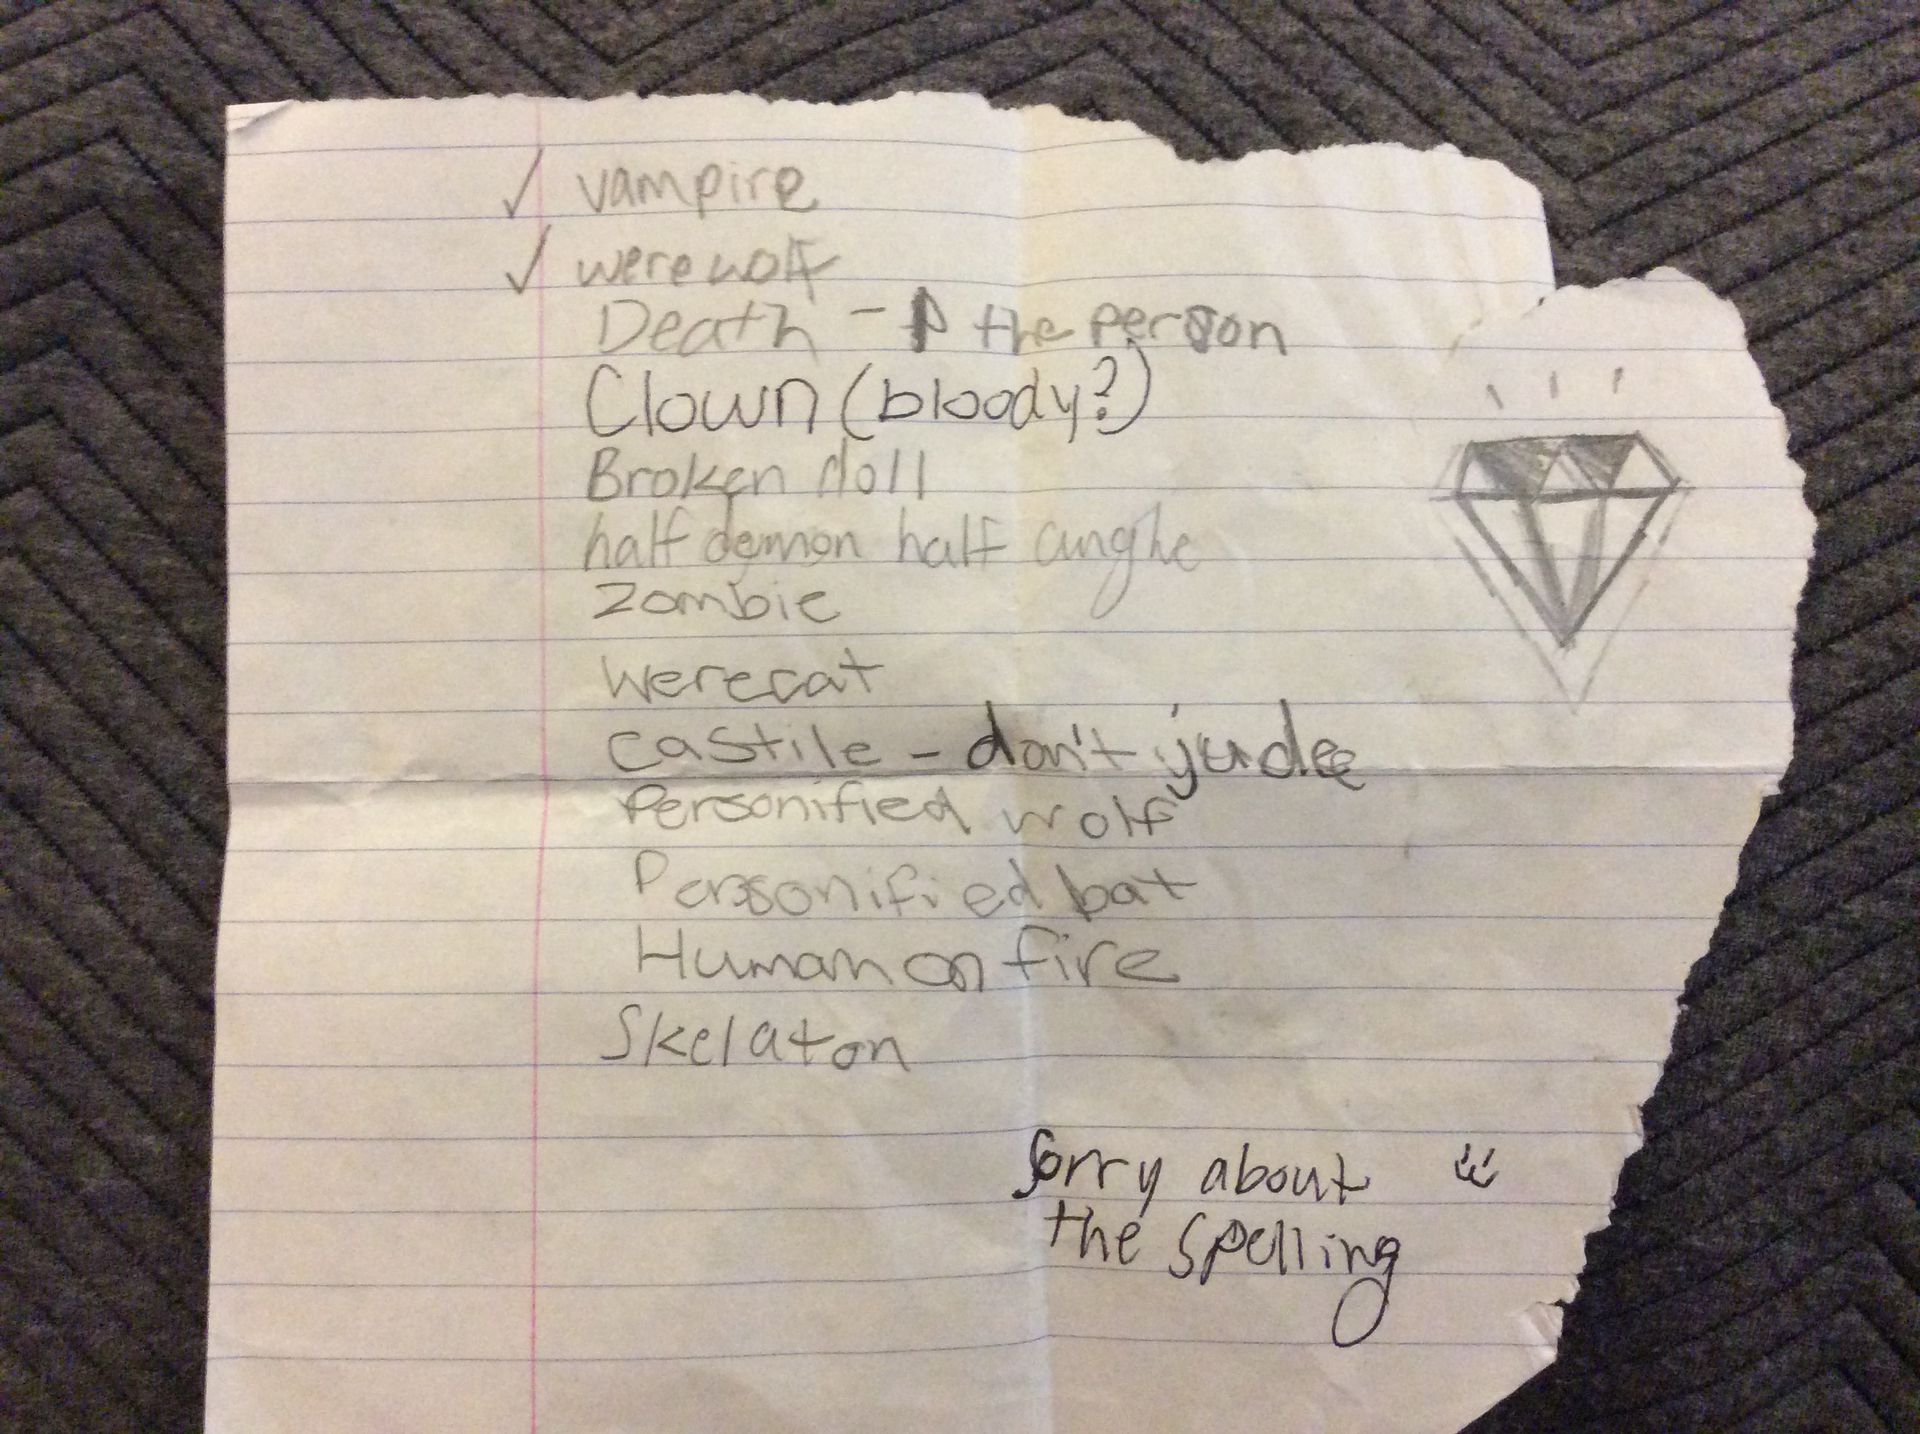 vampire
werewolf
Death - the person
Clown (bloody?)
Broken doll
half demon half anghe
Zombie
Werecat
Castile - don't judee
Personified wolf
Personified bat
Human on fire
Skelaton
Sorry about
the spelling